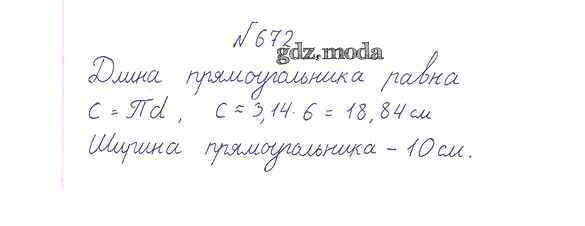 № 672
gdz.moda
Длина прямоугольника равна
C = πd, C = 3,14 · 6 = 18,84 см
Ширина прямоугольника – 10 см.